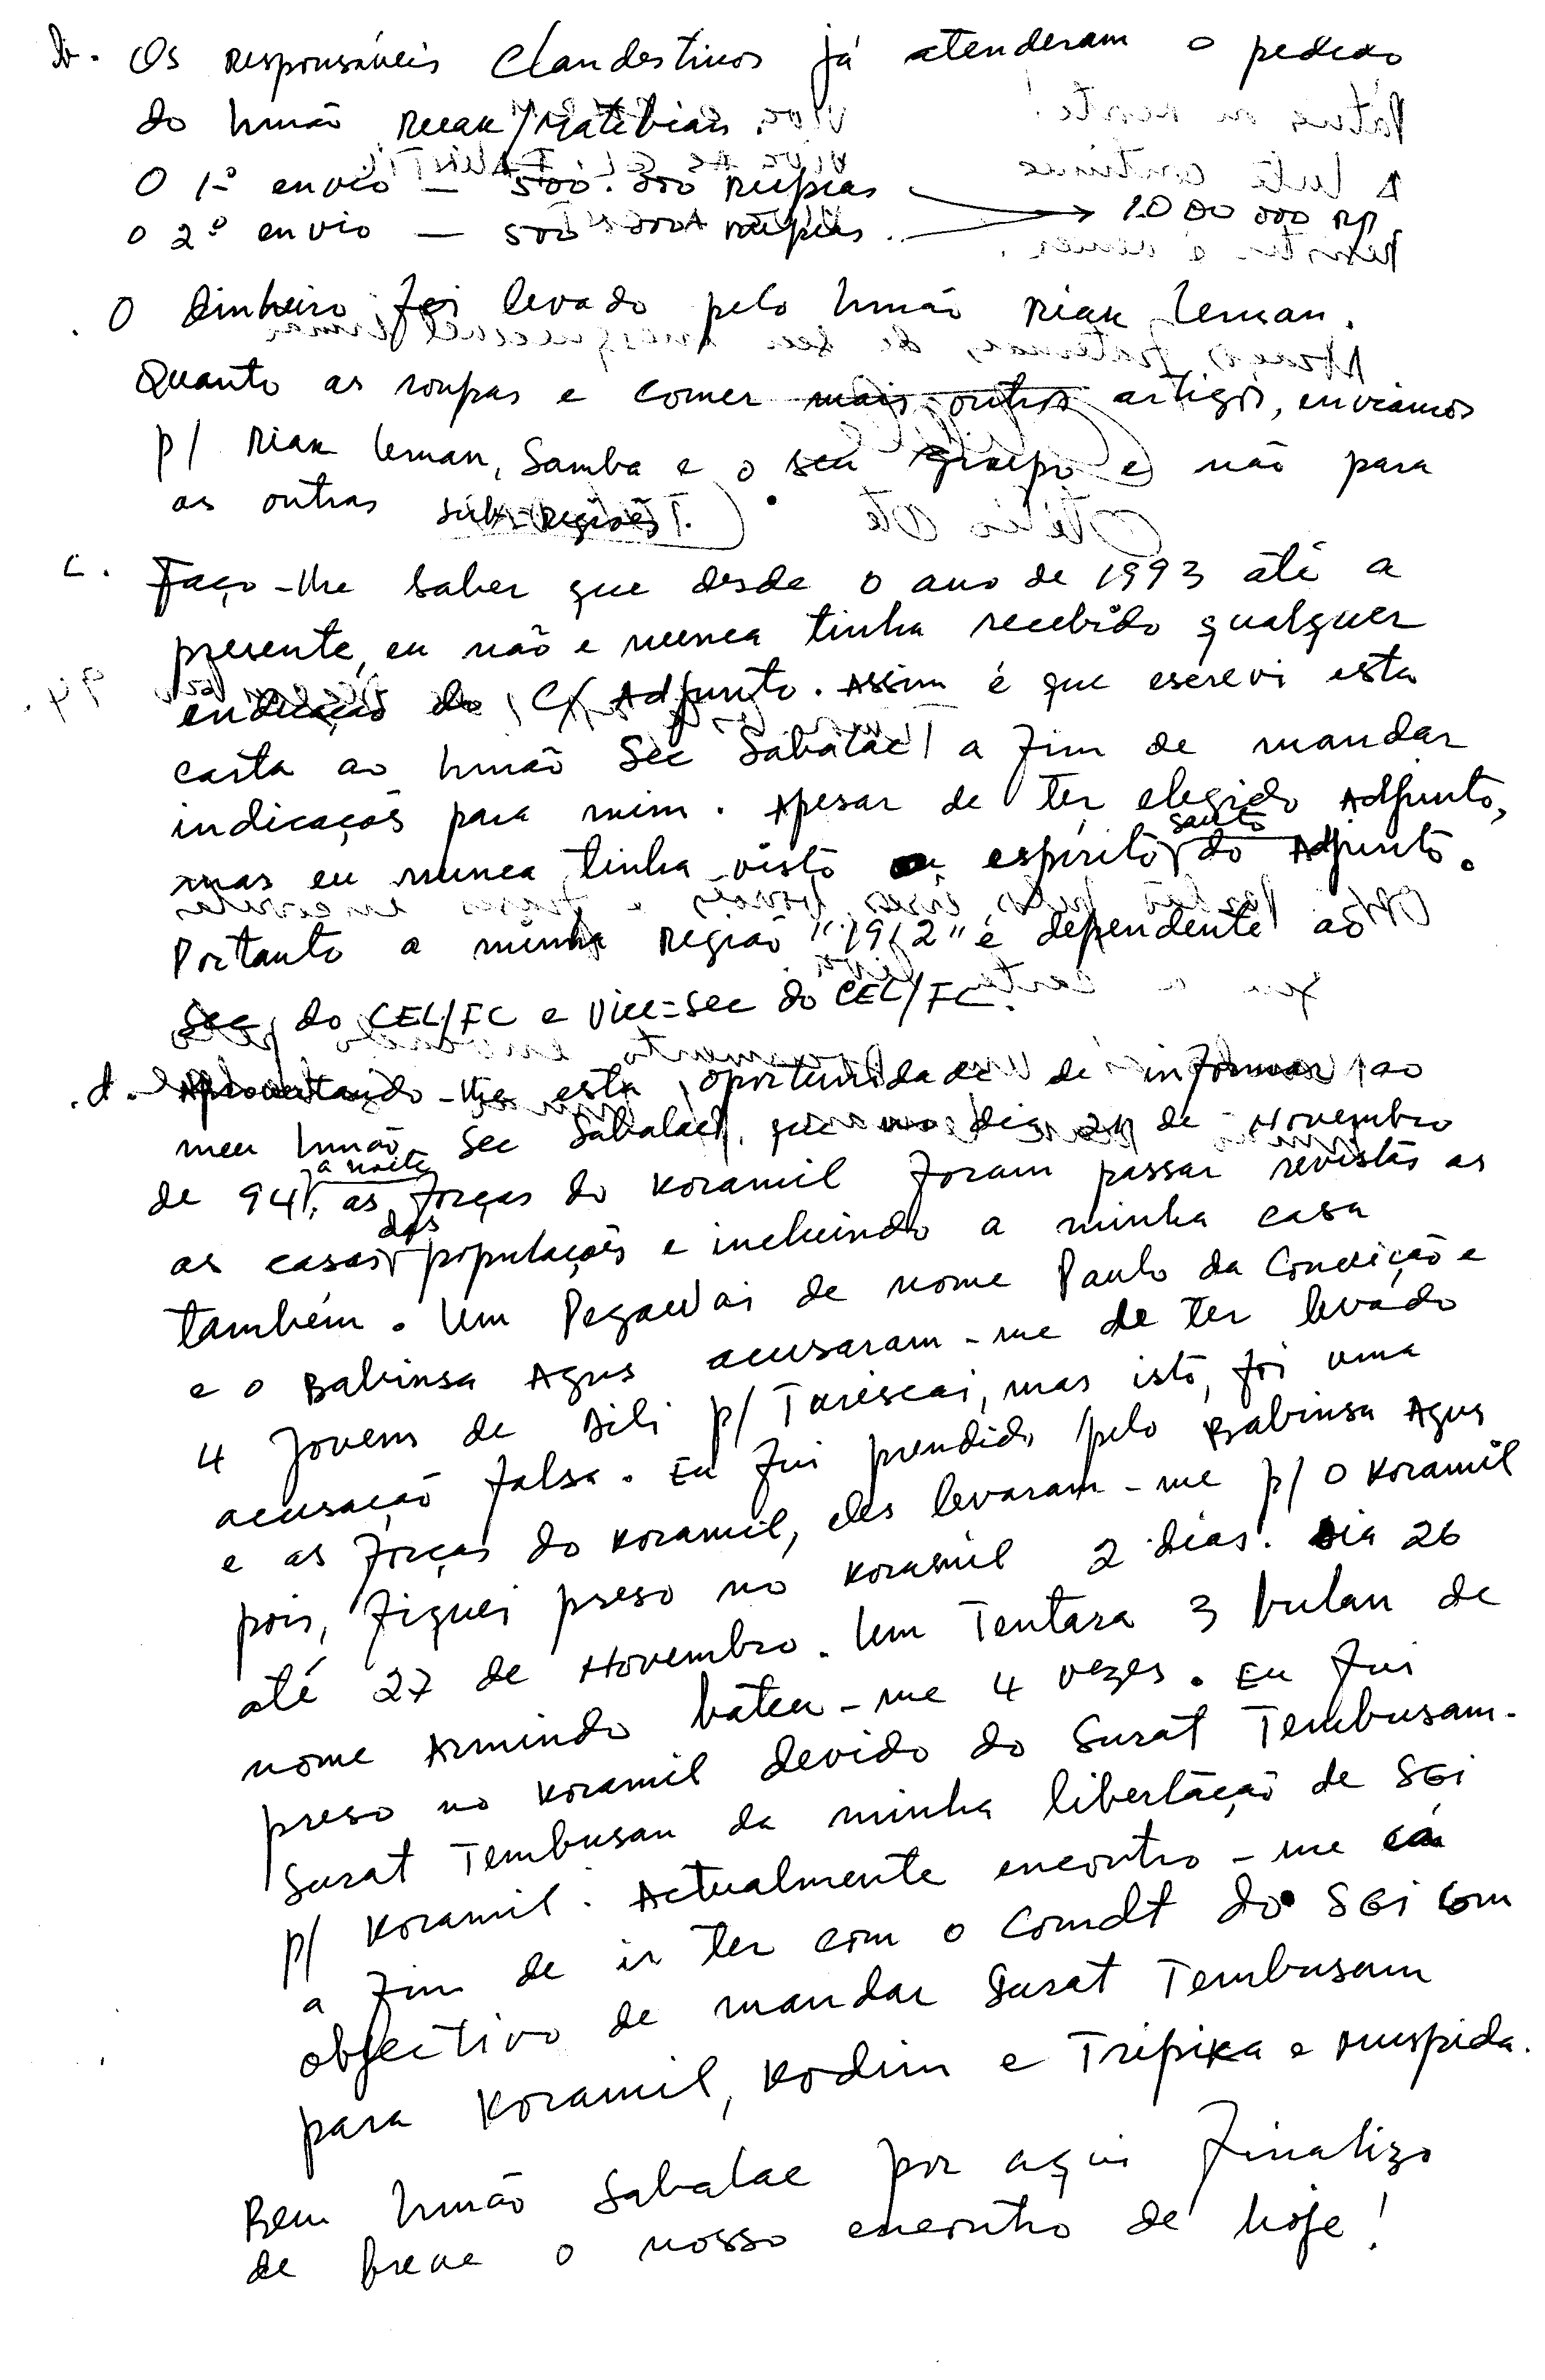 b. Os responsáveis Clandestinos já atenderam o pedido
do Irmão Reeak/Matebian.
O 1º envio — 500.000 Rupias
O 2º envio — 500.000 rupias. → 1.000 000 RP
. O dinheiro foi levado pelo Irmão Riak Leman.
Quanto as roupas e comer mais outros artigos, enviámos
p/ Riak Leman, Samba e o seu grupo e não para
as outras sub-Regiões.
c. Faço-lhe saber que desde o ano de 1993 até a
presente, eu não e nunca tinha recebido qualquer
endicação do C/ Adjunto. Assim é que escrevi esta
carta ao Irmão Sec Sabalae, a fim de mandar
indicaçõs para mim. Apesar de ter elegido Adjunto,
mas eu nunca tinha visto espírito santo do Adjunto.
Portanto a minha Região "1912" é dependente ao
Sec do CEL/FC e Vice-Sec do CEL/FC.
d. Aproveitando-lhe esta oportunidade de informar ao
meu Irmão Sec Sabalae, que no dia 21 de Novembro
de 94, a noite as forças do Koramil foram passar revistas as
as casas das populaçõs e incluindo a minha casa
também. Um Pegawai de nome Paulo da Conceição e
e o Babinsa Agus acusaram-me de ter levado
4 Jovens de Dili p/ Turiscai, mas isto, foi uma
acusação falsa. Eu fui prendido pelo Babinsa Agus
e as forças do Koramil, eles levaram-me p/ o Koramil
pois, fiquei preso no Koramil 2 dias. Dia 26
até 27 de Novembro. Um Tentara 3 bulan de
nome Armindo bateu-me 4 vezes. Eu fui
preso no Koramil devido do Surat Tembusam.
Surat Tembusan da minha libertação de SGI
p/ Koramil. Actualmente encontro-me cá
a fim de ir ter com o Comdt do SGI com
objectivo de mandar Surat Tembusam
para Koramil, Kodim e Tripika e Muspida.
Bem Irmão Sabalae por aqui finalizo
de breve o nosso encontro de hoje!